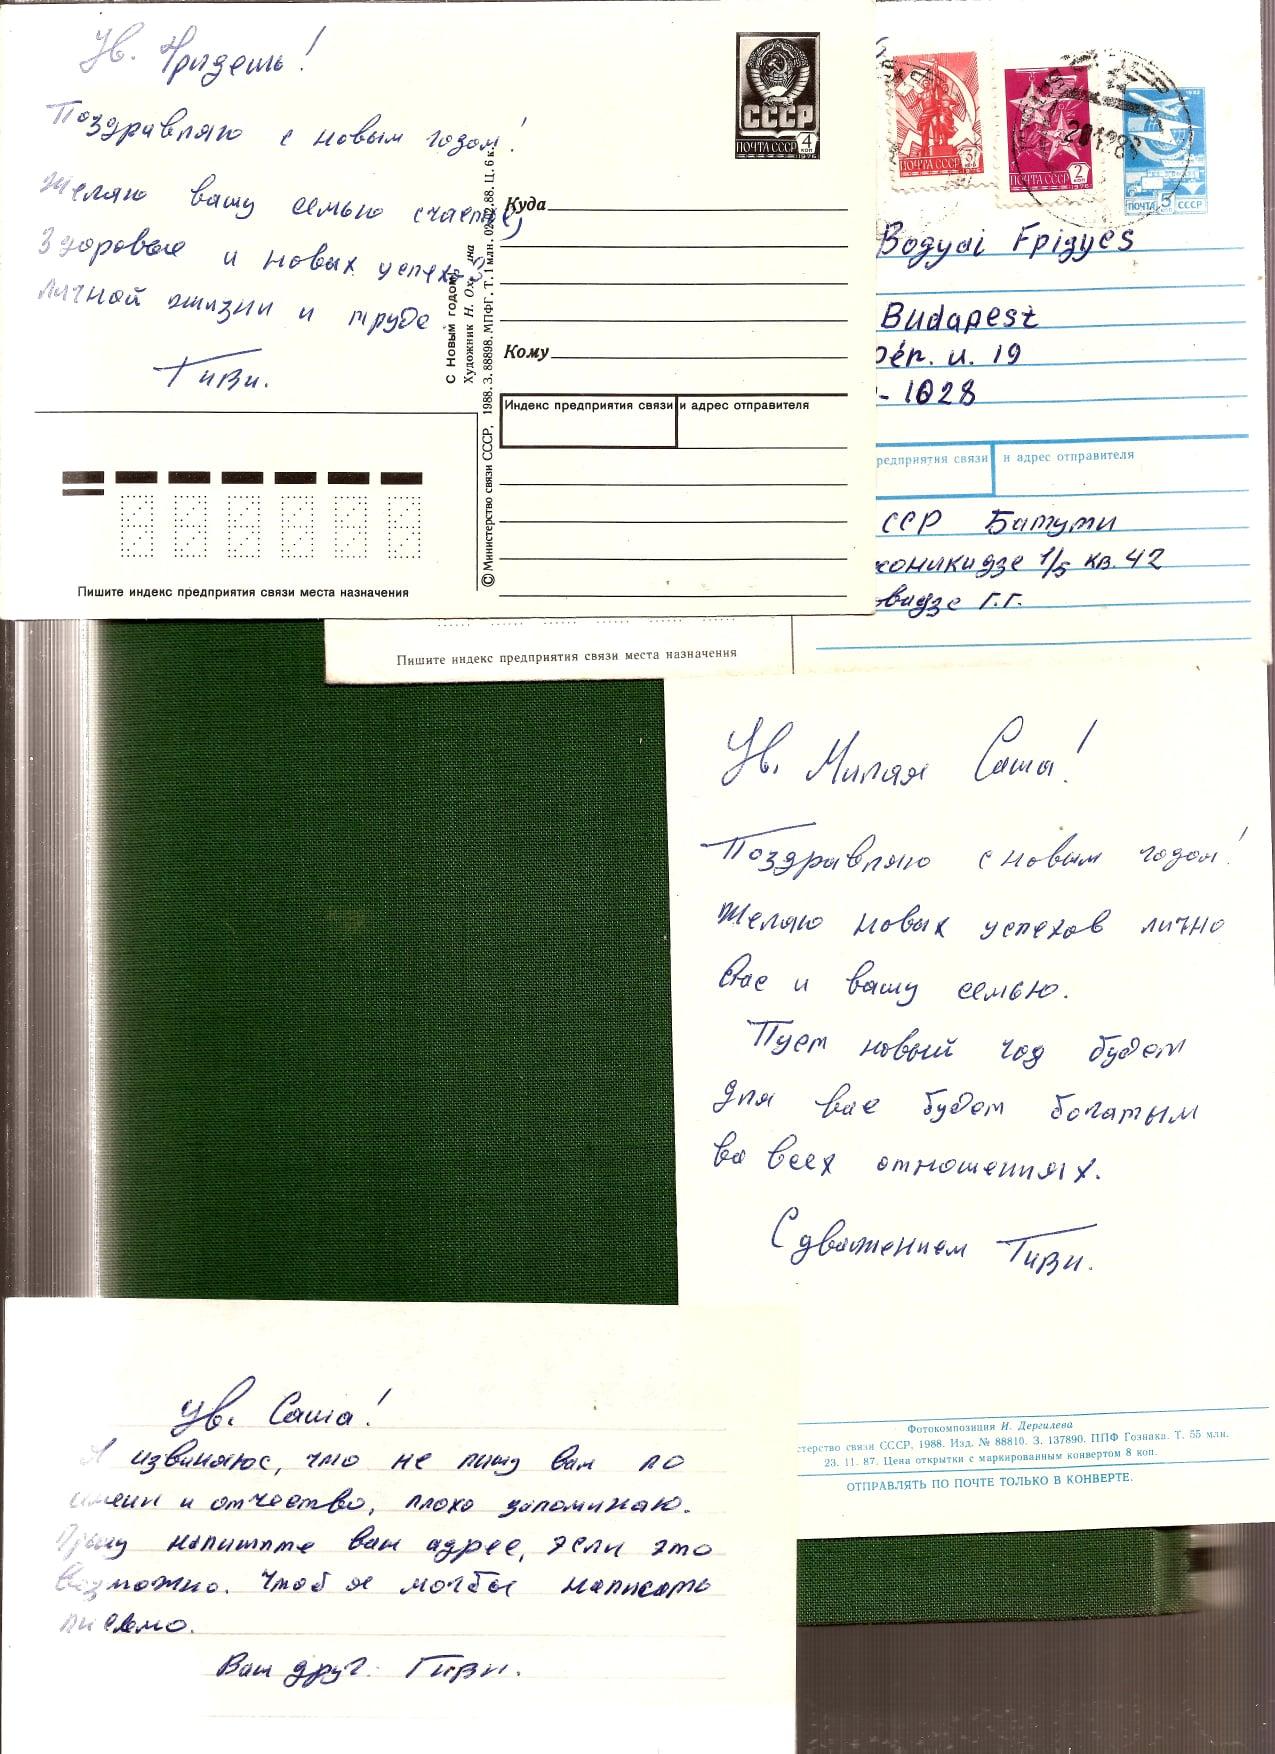 Ув. Фридеш!
Поздравляю с новым годом!
Желяю вашу семью счастье,
Здоровье и новых успехов
личной жизни и труде
Гиви.
СССР
4 коп
ПОЧТА СССР
1976
Куда
Кому
Индекс предприятия связи и адрес отправителя
С Новым годом!
Художник Н.
© Министерство связи СССР, 1988. З. 88898. МПФГ. Т. 1 млн. 88. Ц. 6 к.
Пишите индекс предприятия связи места назначения
3 к
ПОЧТА СССР
1976
2 к
ПОЧТА СССР
1976
1982
ПОЧТА 5 к СССР
Bogyai Fpigyes
Budapest
u. 19
- 1028
редприятия связи и адрес отправителя
ССР Батуми
коникидзе 1/5 кв. 42
видзе Г.Г.
Пишите индекс предприятия связи места назначения
Ув. Милая Саша!
Поздравляю с новым годом!
Желяю новых успехов лично
Вас и вашу семью.
Пуст новый год будет
для вас будет богатым
во всех отношениях.
С уважением Гиви.
Фотокомпозиция И. Дергилева
терство связи СССР, 1988. Изд. № 88810. З. 137890. ППФ Гознака. Т. 55 млн.
23. 11. 87. Цена открытки с маркированным конвертом 8 коп.
ОТПРАВЛЯТЬ ПО ПОЧТЕ ТОЛЬКО В КОНВЕРТЕ.
Ув. Саша!
Я извиняюс, что не пишу вам по
имени и отчество, плохо запоминаю.
Прошу напишите ваш адрес, если это
возможно. Чтоб я мог бы написать
письмо.
Ваш друг. Гиви.